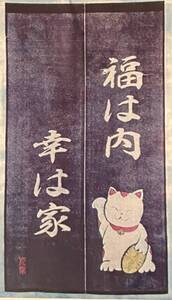 福は内
幸は家